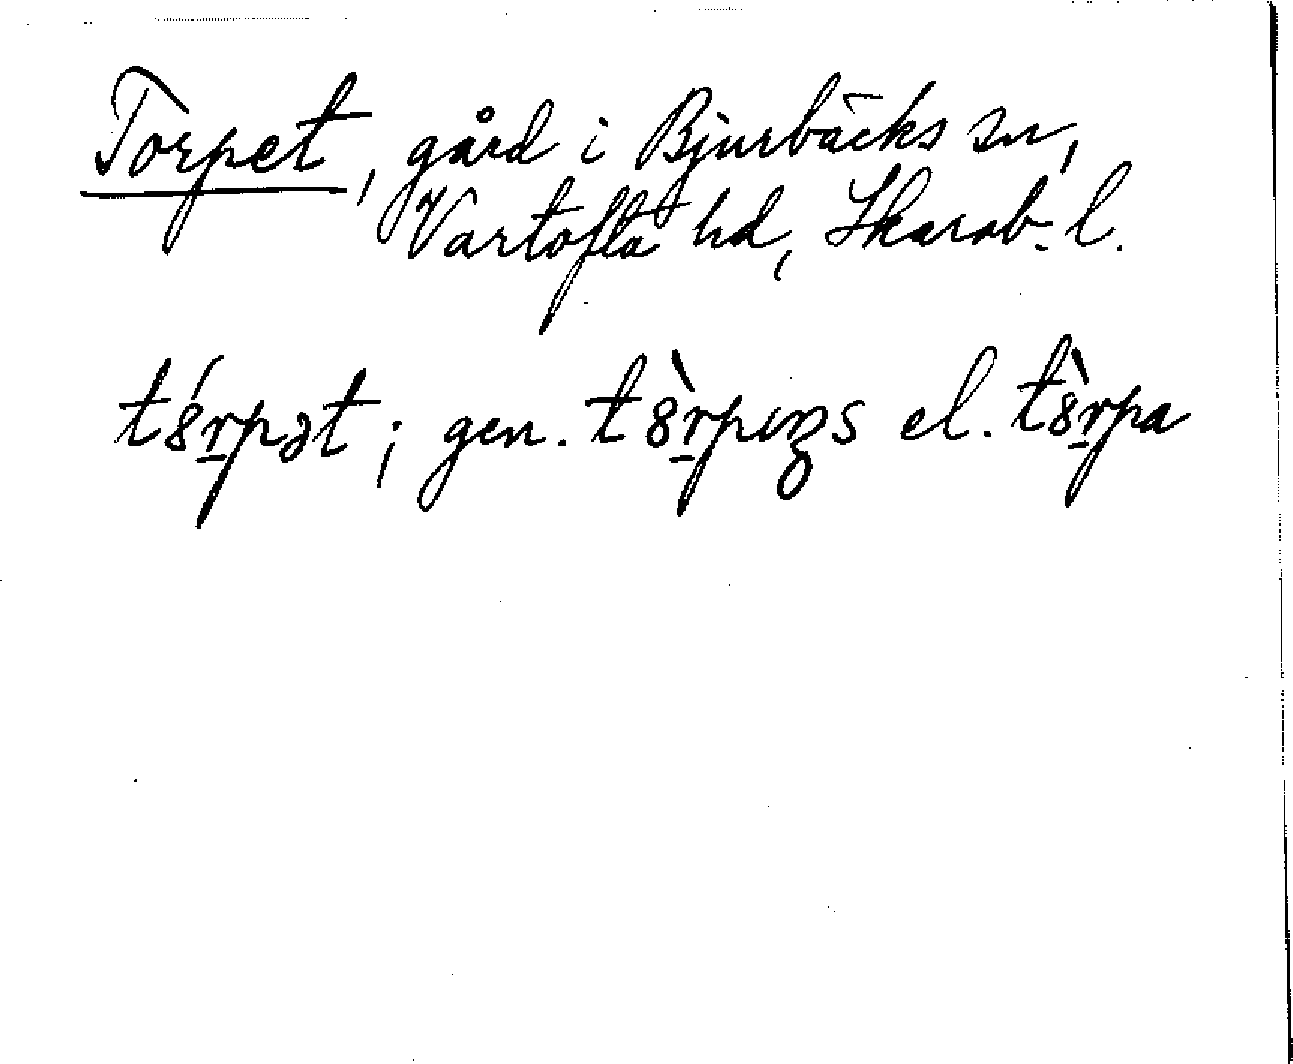 Torpet, gård i Bjurbäcks sn,
Vartofta hd, Skarab. l.
tȣ́r̠pət; gen. tȣ̀r̠pıŋs el. tȣ̀r̠pa